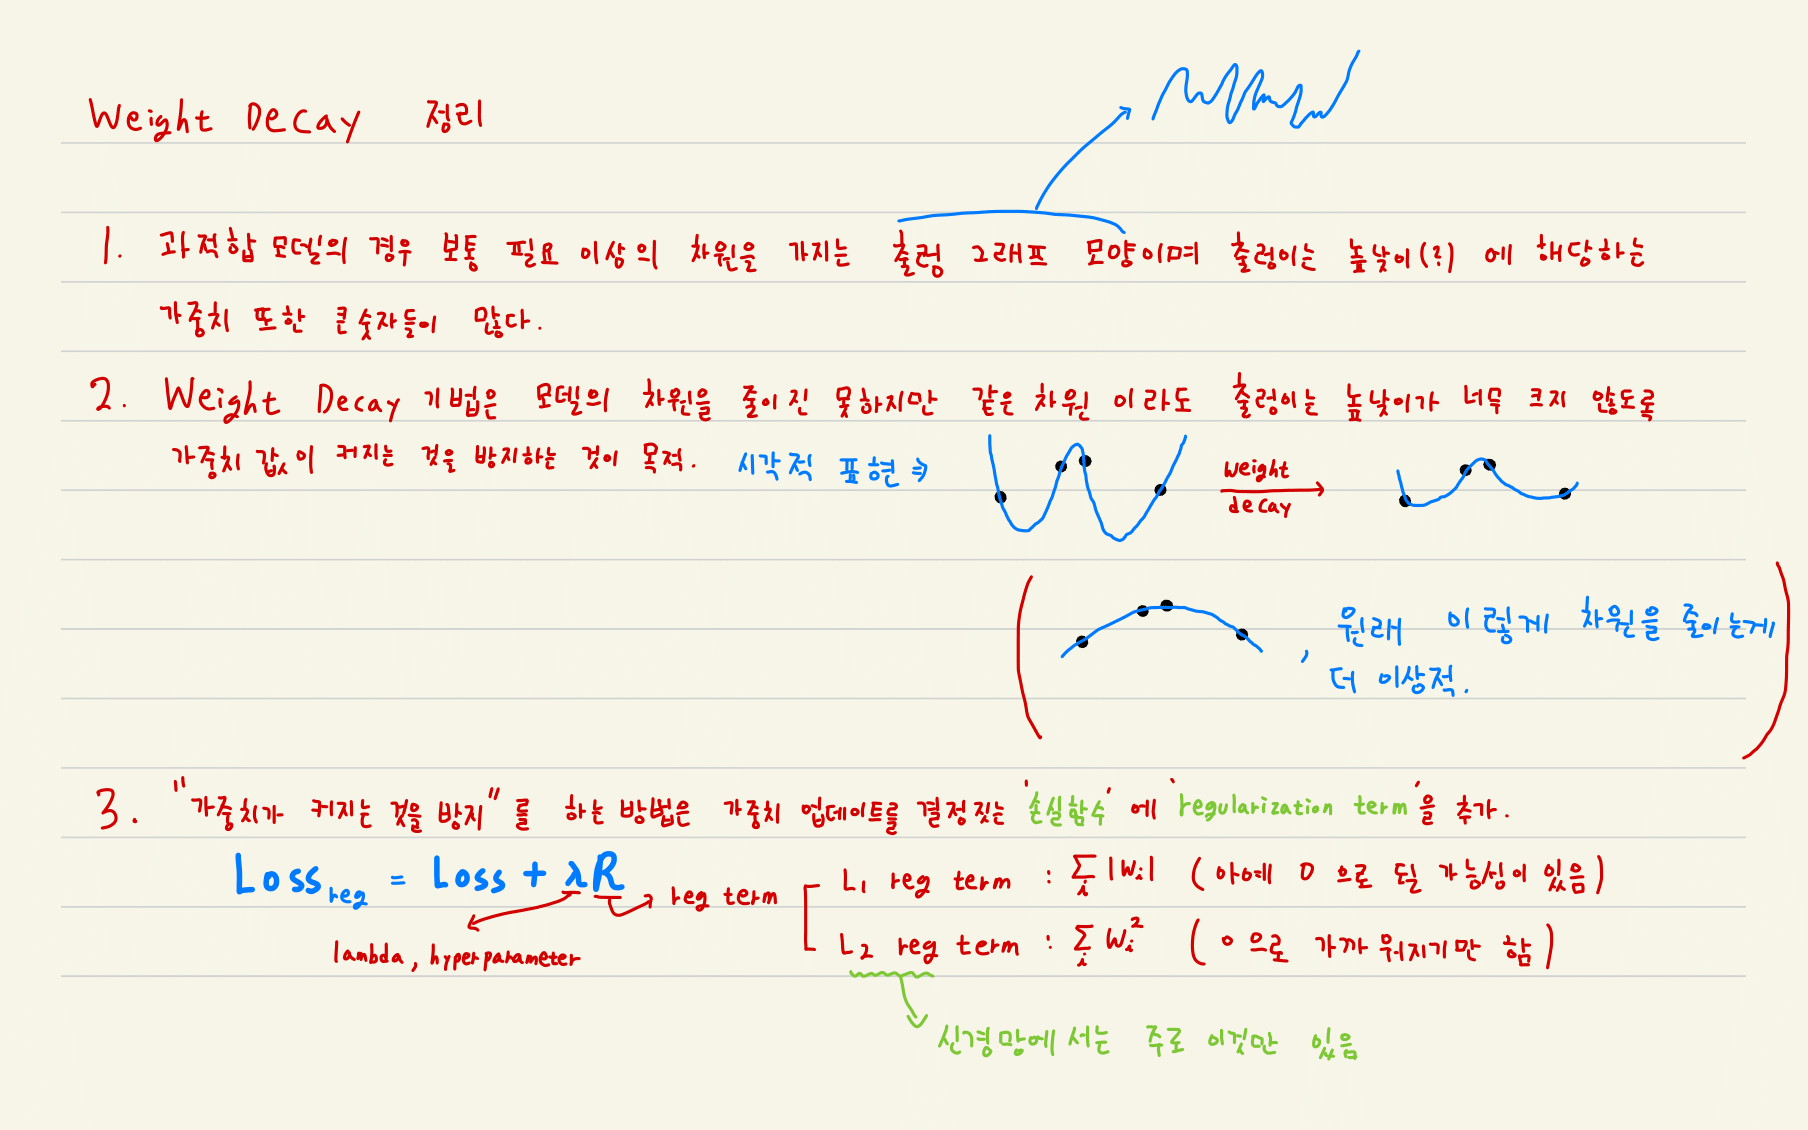 Weight Decay 정리
1. 과적합 모델의 경우 보통 필요 이상의 차원을 가지는 출렁 그래프 모양이며 출렁이는 높낮이(?) 에 해당하는
가중치 또한 큰 숫자들이 많다.
2. Weight Decay 기법은 모델의 차원을 줄이진 못하지만 같은 차원 이라도 출렁이는 높낮이가 너무 크지 않도록
가중치 값이 커지는 것을 방지하는 것이 목적. 시각적 표현 ⇒
weight
decay
, 원래 이렇게 차원을 줄이는게
더 이상적.
3. "가중치가 커지는 것을 방지"를 하는 방법은 가중치 업데이트를 결정짓는 '손실함수' 에 'regularization term'을 추가.
Loss_reg = Loss + λR
reg term
L₁ reg term : Σ_i |w_i| (아예 0 으로 될 가능성이 있음)
lambda, hyperparameter
L₂ reg term : Σ_i w_i² (0 으로 가까워지기만 함)
신경망에서는 주로 이것만 있음